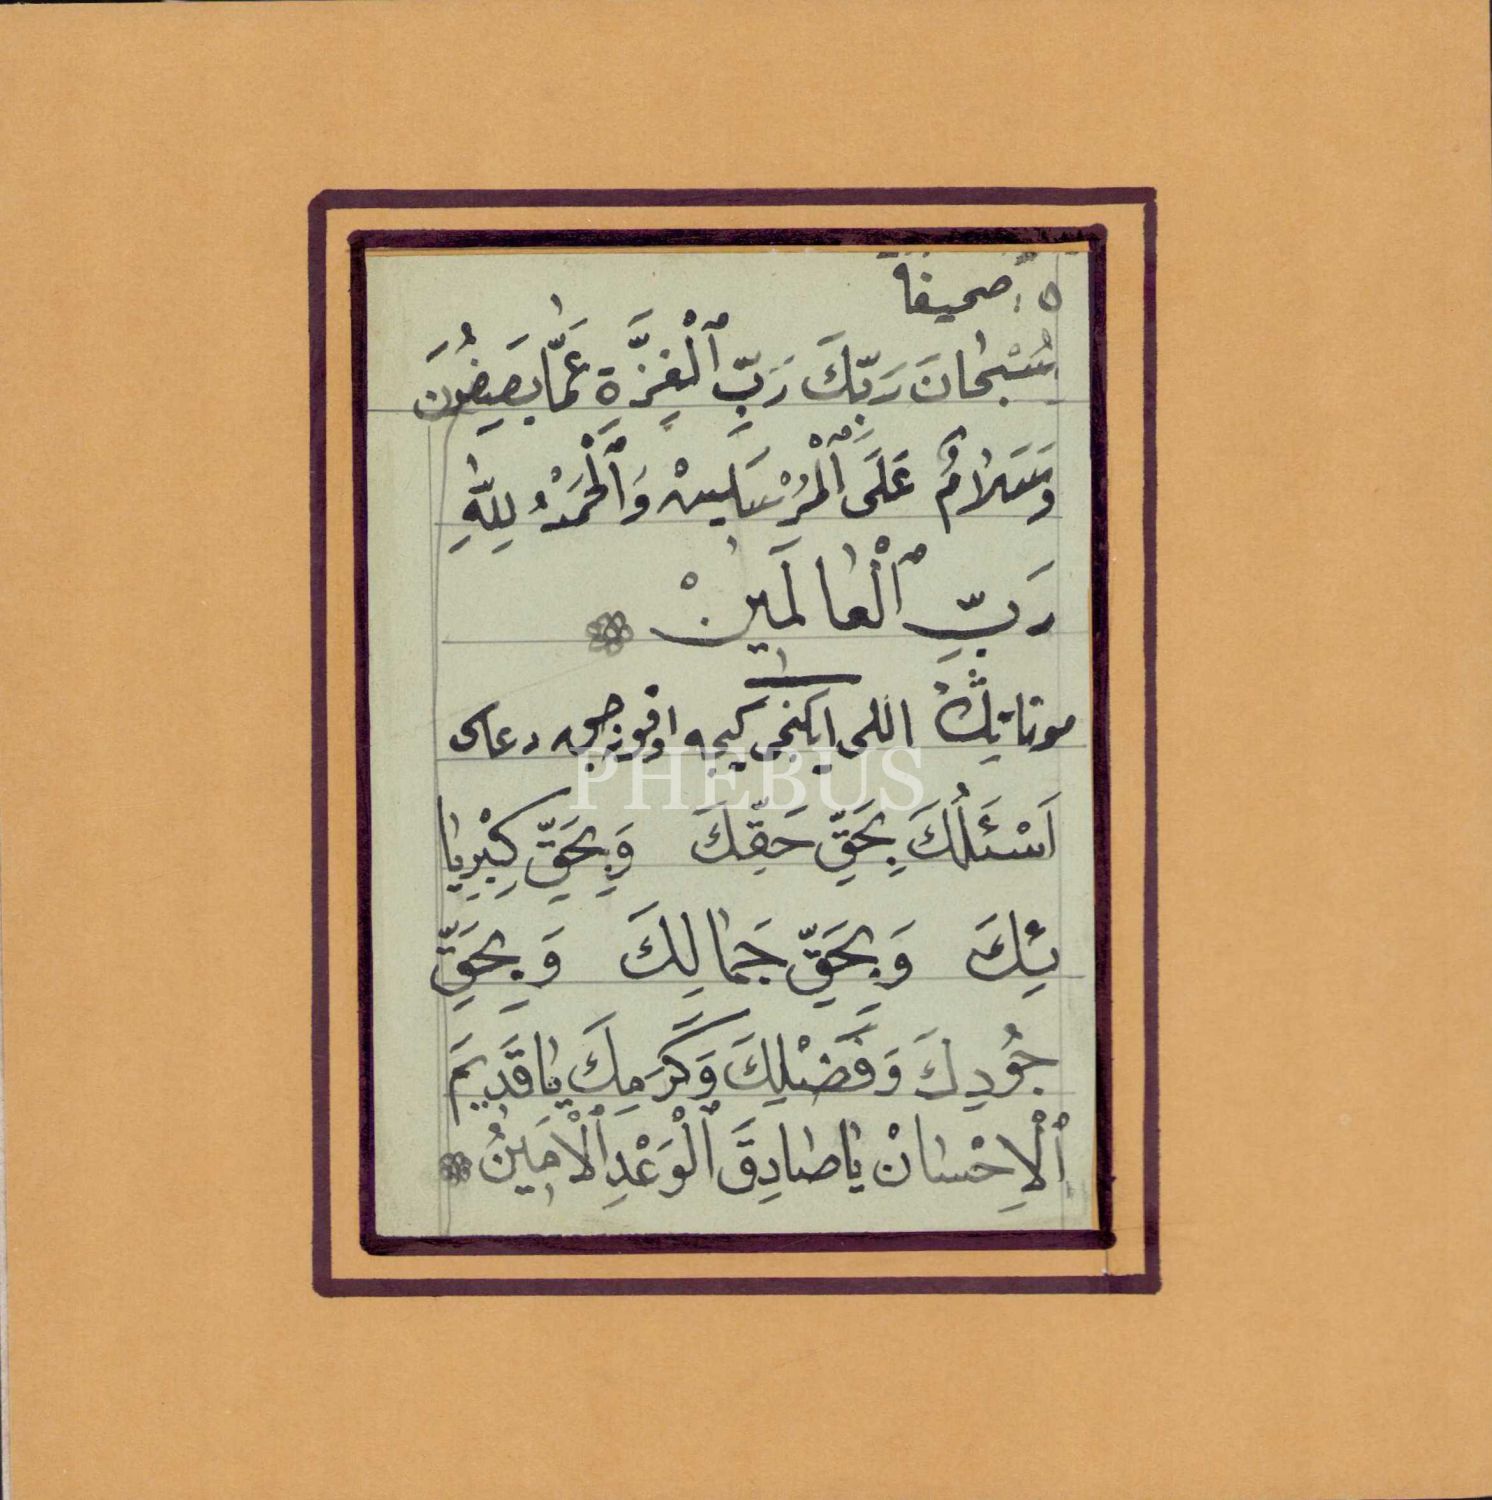 ٥. صحيفا
سُبْحَانَ رَبِّكَ رَبِّ ٱلْعِزَّةِ عَمَّا يَصِفُونَ
وَسَلَامٌ عَلَى ٱلْمُرْسَلِينْ وَٱلْحَمْدُ لِلّٰهِ
رَبِّ ٱلْعَالَمِينْ
اللى ايكنجى كيجه دعاى
PHEBUS
اَسْئَلُكَ بِحَقِّ حَقِّكَ وَبِحَقِّ كِبْرِيَا
ئِكَ وَبِحَقِّ جَمَالِكَ وَبِحَقِّ
جُودِكَ وَفَضْلِكَ وَكَرَمِكَ يَا قَدِيمَ
ٱلْاِحْسَانْ يَا صَادِقَ ٱلْوَعْدِ ٱلْاَمِينُ